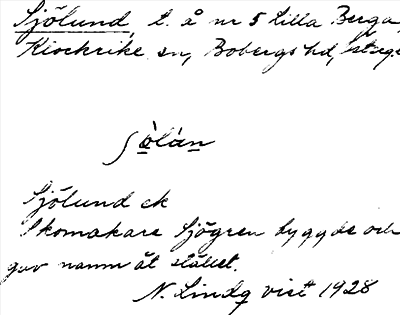 Sjölund, t. å nr 5 Lilla Berga,
Klockrike sn, Bobergs hd,
ʃòlán
Sjölund ek
Skomakare Sjögren byggde och
gav namn åt stället.
N. Lindq vist 1928